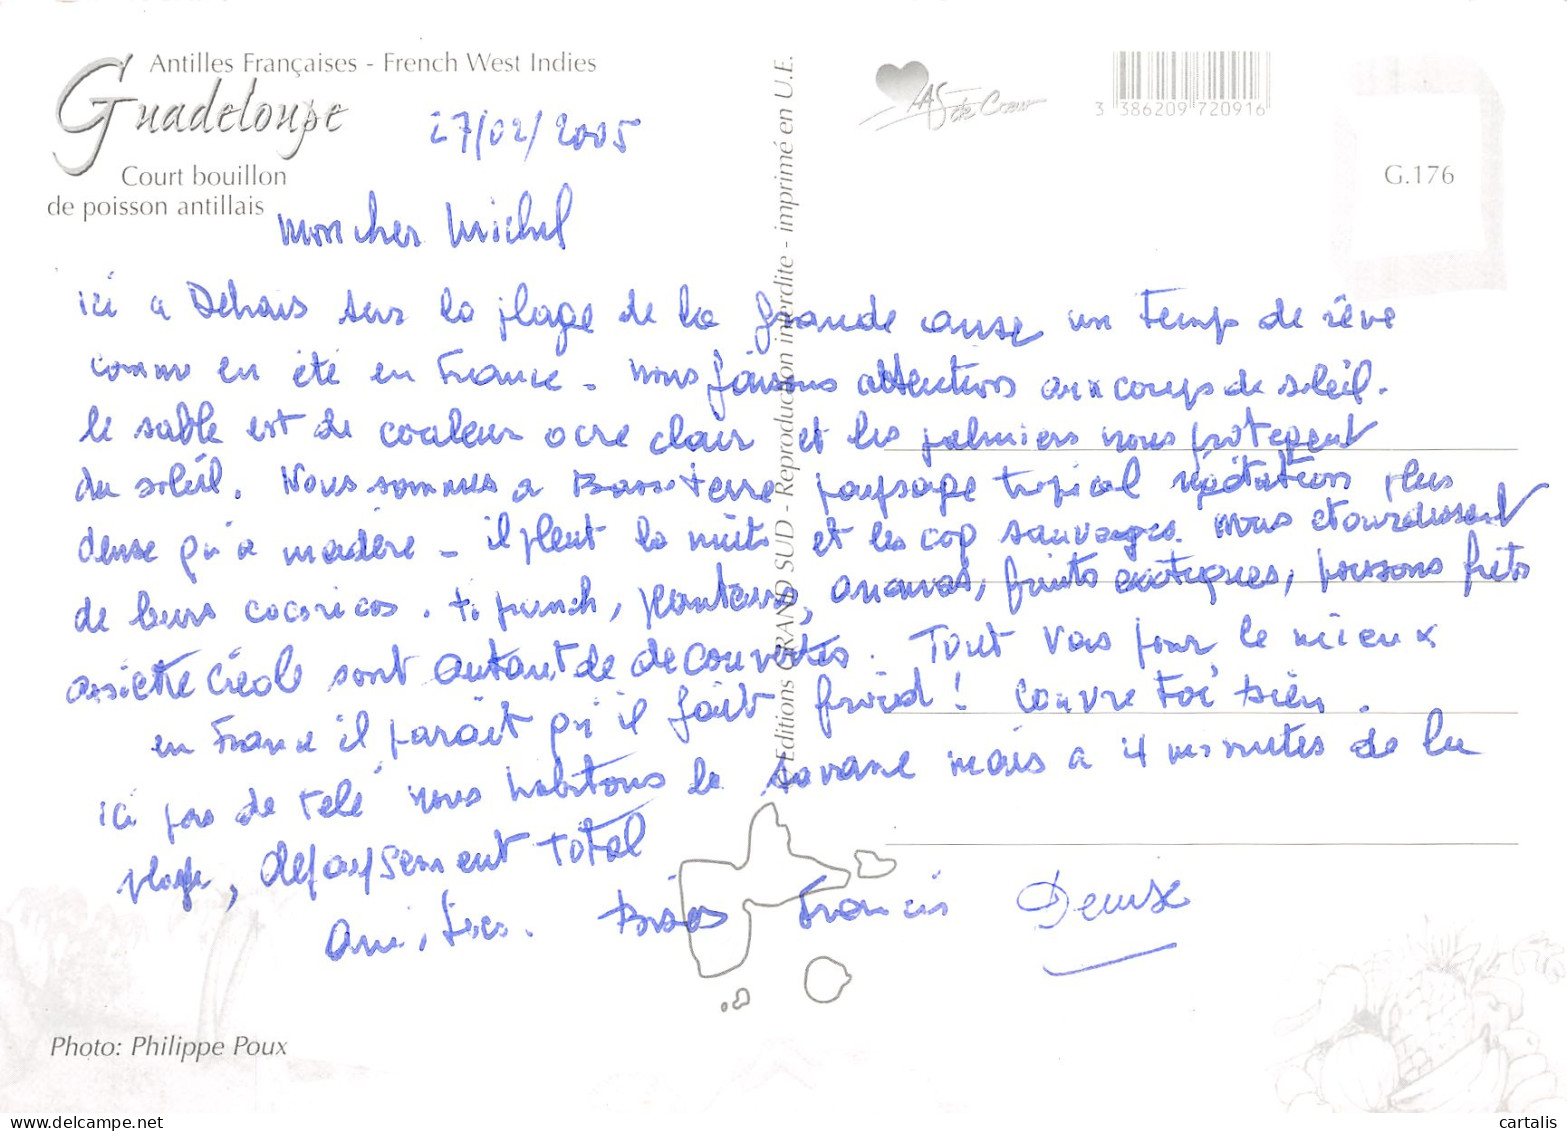 Antilles Françaises - French West Indies
Guadeloupe
Court bouillon
de poisson antillais
27/02/2005
AS de Cœur
3 386209 720916
G.176
Editions GRAND SUD - Reproduction interdite - imprimé en U.E.
mon cher Michel
ici a Dehais sur la plage de la grande anse un temps de rêve
comme en été en France - nous faisons attention aux coups de soleil.
le sable est de couleur ocre clair et les palmiers nous protegent
du soleil. Nous sommes a Basse terre paysage tropical végétation plus
dense qu'a madère - il pleut la nuit et les coq sauvages nous etourdissent
de leurs cocoricos. ti punch, planteurs, ananas, fruits exotiques, poissons frits
assiette créole sont autant de decouvertes. Tout vas pour le mieux
en France il paraît qu'il fait froid! couvre toi bien.
ici pas de télé nous habitons la savane mais a 4 minutes de la
plage, depaysement total
Amitiés. Bises Francis Denise
Photo: Philippe Poux
cartalis